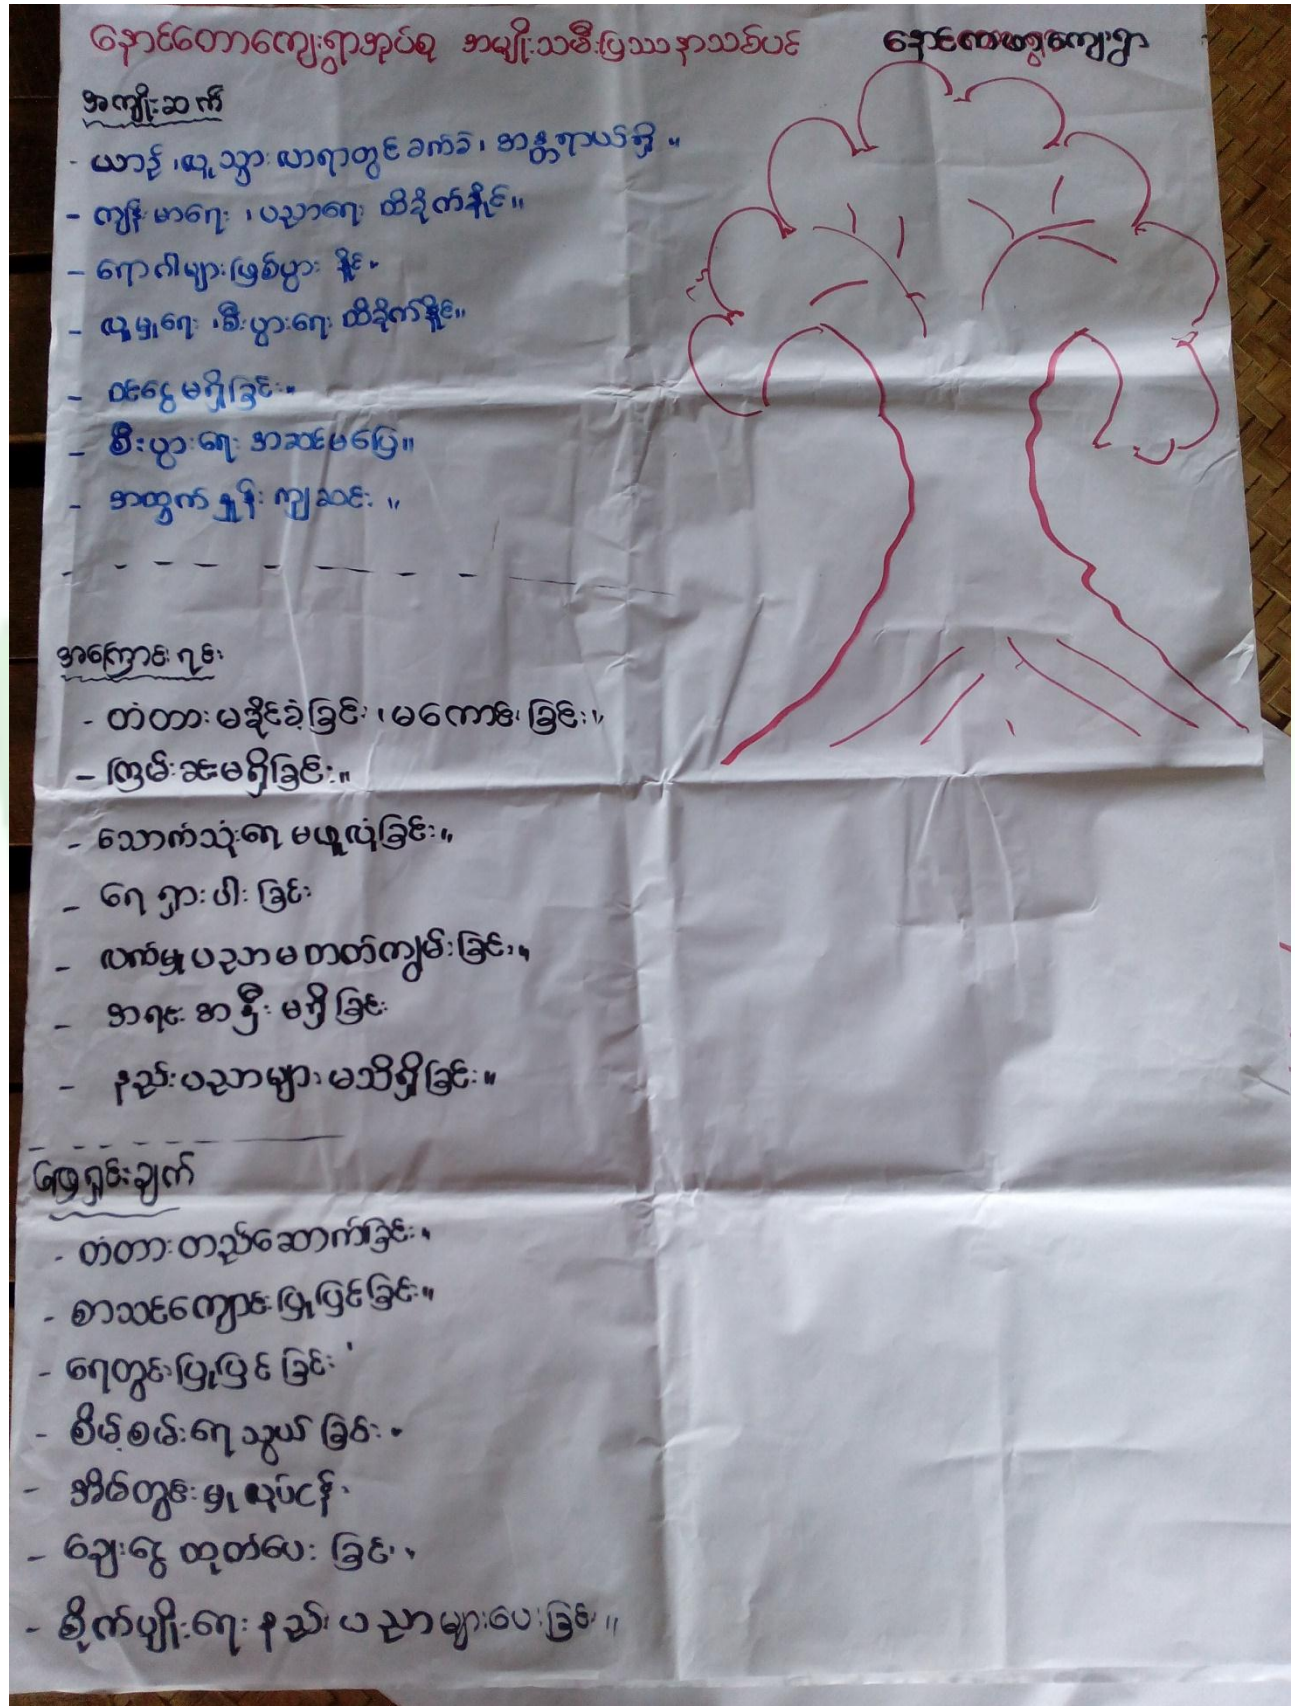 နောင်တောကျေးရွာအုပ်စု အမျိုးသမီးပြဿနာသစ်ပင်
အကျိုးဆက်
- ယာဉ်၊ လူသွားလာရာတွင်ခက်ခဲ၊ အန္တရာယ်ရှိ။
- ကျန်းမာရေး၊ ပညာရေး ထိခိုက်နိုင်။
- ရောဂါများဖြစ်ပွားနိုင်။
- လူမှုရေး၊ စီးပွားရေး ထိခိုက်နိုင်။
- ဝင်ငွေမရှိခြင်း။
- စီးပွားရေး အဆင်မပြေ။
- အထွက်နှုန်း ကျဆင်း။
အကြောင်းရင်း
- တံတား မခိုင်ခံ့ခြင်း၊ မကောင်းခြင်း။
- ကြမ်းခင်းမရှိခြင်း။
- သောက်သုံးရေ မဖူလုံခြင်း။
- ရေ ရှားပါးခြင်း
- လက်မှုပညာ မတတ်ကျွမ်းခြင်း။
- အရင်းအနှီး မရှိခြင်း
- နည်းပညာများ မသိရှိခြင်း။
ဖြေရှင်းချက်
- တံတားတည်ဆောက်ခြင်း။
- စာသင်ကျောင်းပြုပြင်ခြင်း။
- ရေတွင်းပြုပြင်ခြင်း
- စိမ့်စမ်းရေသွယ်ခြင်း။
- အိမ်တွင်းမှုလုပ်ငန်း
- ချေးငွေ ထုတ်ပေးခြင်း
- စိုက်ပျိုးရေးနည်းပညာများပေးခြင်း။